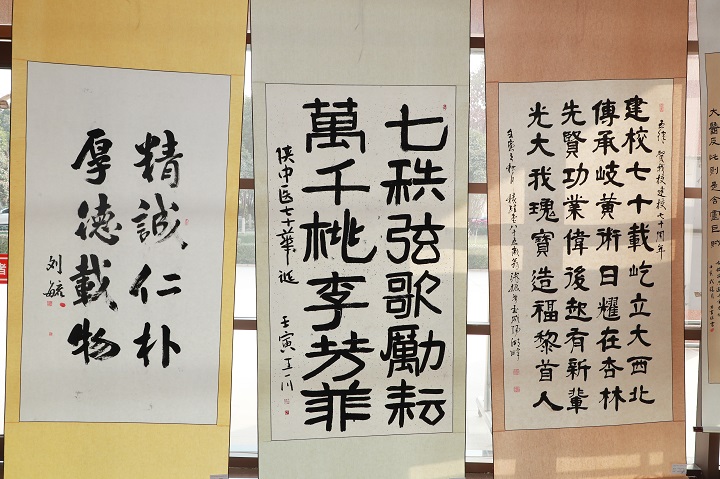 精誠仁朴
厚德載物
刘毓
七秩弦歌勵耘
萬千桃李芳菲
陕中医七十華诞
壬寅王一川
五律 賀我校建校七十周年
建校七十載屹立大西北
傳承岐黄術日耀在杏林
先賢功業偉後起有新輩
光大我瑰寶造福黎首人
壬寅之秋月
大醫
者